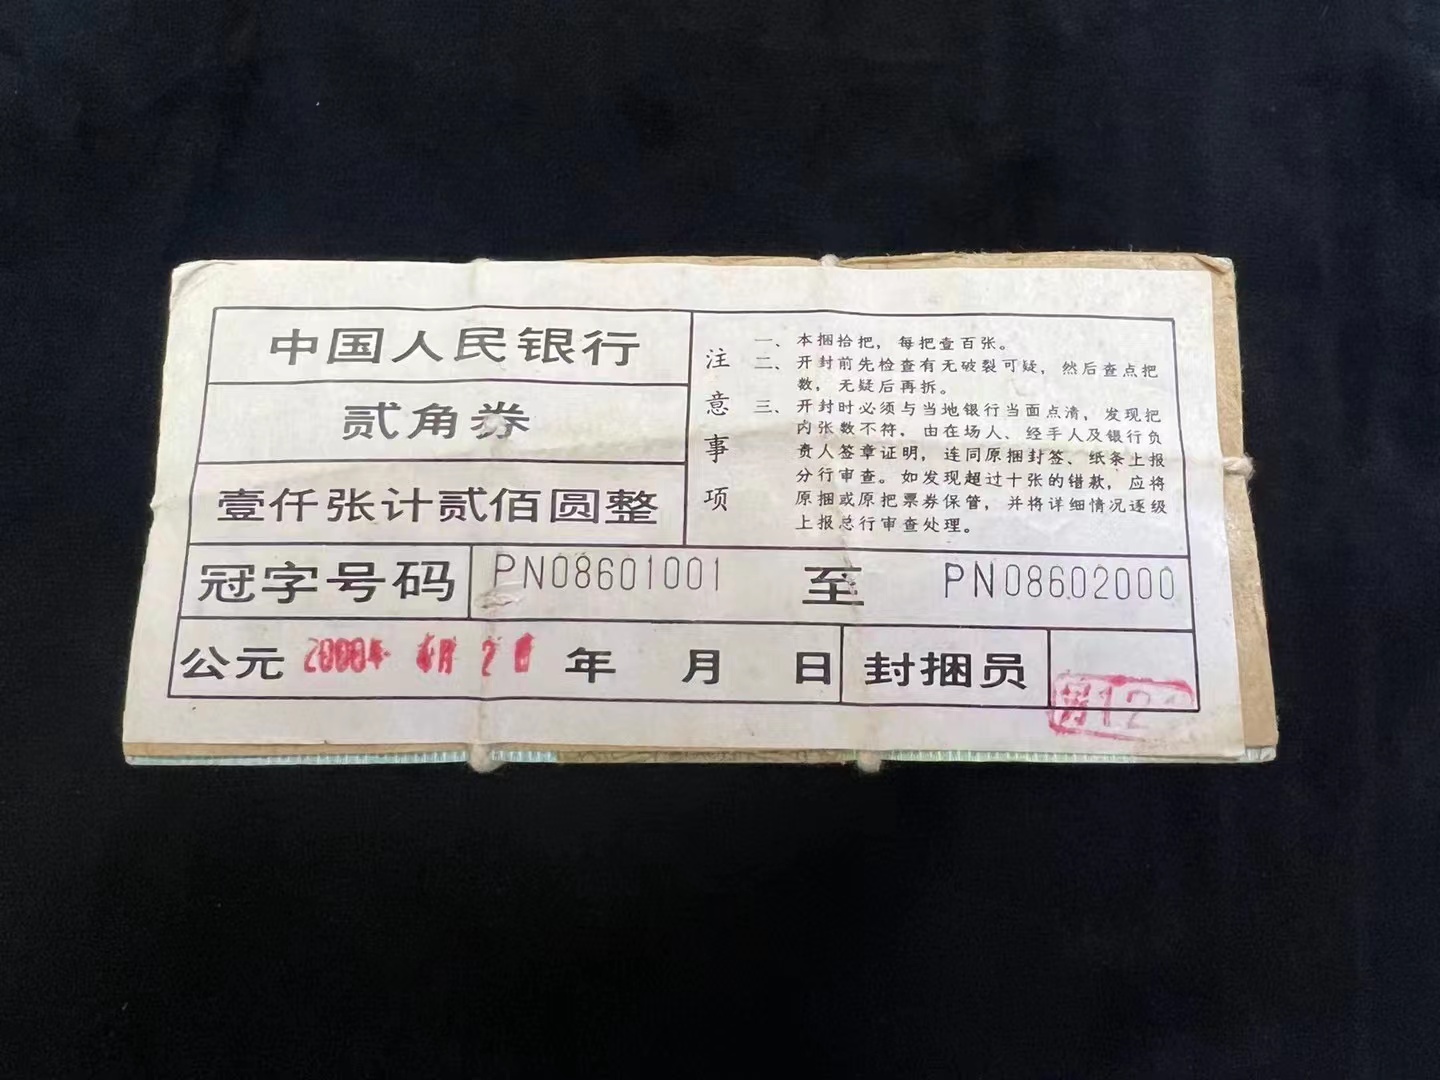 中国人民银行
贰角券
壹仟张计贰佰圆整
注意事项
一、本捆拾把，每把壹百张。
二、开封前先检查有无破裂可疑，然后查点把
数，无疑后再拆。
三、开封时必须与当地银行当面点清，发现把
内张数不符，由在场人、经手人及银行负
责人签章证明，连同原捆封签、纸条上报
分行审查。如发现超过十张的错款，应将
原捆或原把票券保管，并将详细情况逐级
上报总行审查处理。
冠字号码 PN08601001 至 PN08602000
公元 2000年 年 月 日 封捆员